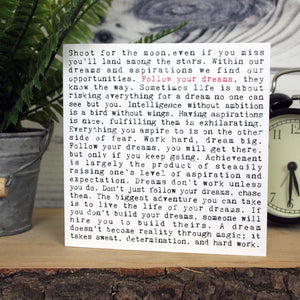 Shoot for the moon,even if you miss
you'll land among the stars. Within our
dreams and aspirations we find our
opportunities. Follow your dreams, they
know the way. Sometimes life is about
risking everything for a dream no one can
see but you. Intelligence without ambition
is a bird without wings. Having aspirations
is nice, fulfilling them is exhilarating.
Everything you aspire to is on the other
side of fear. Work hard, dream big.
Follow your dreams, you will get there,
but only if you keep going. Achievement
is largely the product of steadily
raising one's level of aspiration and
expectation. Dreams don't work unless
you do. Don't just follow your dreams, chase
them. The biggest adventure you can take
is to live the life of your dreams. If
you don't build your dreams, someone will
hire you to build theirs. A dream
doesn't become reality through magic; it
takes sweat, determination, and hard work.